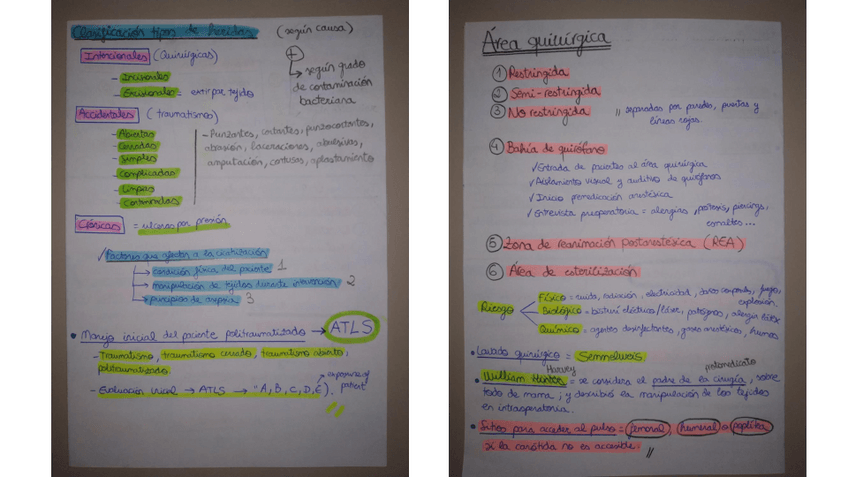 Clasificación tipos de heridas (según causa)
Intencionales (Quirúrgicas)
- Incisionales
- Excisionales = extirpar tejido
+
↳ según grado
de contaminación
bacteriana
Accidentales (traumatismo)
- Abiertas
- Cerradas
- Simples
- complicadas
- Limpias
- Contaminadas
- Punzantes, cortantes, punzocortantes,
abrasión, laceraciones, abrasivas,
amputación, contusas, aplastamiento
Crónicas = ulceras por presión
✓ Factores que afectan a la cicatrización
→ condición física del paciente 1
→ manipulación de tejidos durante intervención 2
→ principios de asepsia 3
• Manejo inicial del paciente politraumatizado → ATLS
- Traumatismo, traumatismo cerrado, traumatismo abierto,
politraumatizado.
- Evaluación inicial → ATLS → "A, B, C, D, E).
Área quirúrgica
① Restringida
② Semi-restringida
③ No restringida // separadas por paredes, puertas y
líneas rojas.
④ Bahía de quirófano
✓ Entrada de pacientes al área quirúrgica
✓ Aislamiento visual y auditivo de quirófanos
✓ Inicio premedicación anestésica
✓ Entrevista preoperatoria = alergias, protesis, piercings,
esmaltes...
⑤ Zona de reanimación postanestésica (REA)
⑥ Área de esterilización
Riesgo
Físico = ruido, radiación, electricidad, fuego,
explosión.
Biológico = bisturí eléctrico/láser, patógenos, alergia látex
Químico = agentes desinfectantes, gases anestésicos, humos
• Lavado quirúrgico = Semmelweis.
Harvey
• William Hunter = se considera el padre de la cirugía, sobre
todo de mama; y describió la manipulación de los tejidos
en intraoperatoria.
• Sitios para acceder al pulso = femoral, humeral o poplítea
si la carótida no es accesible. //